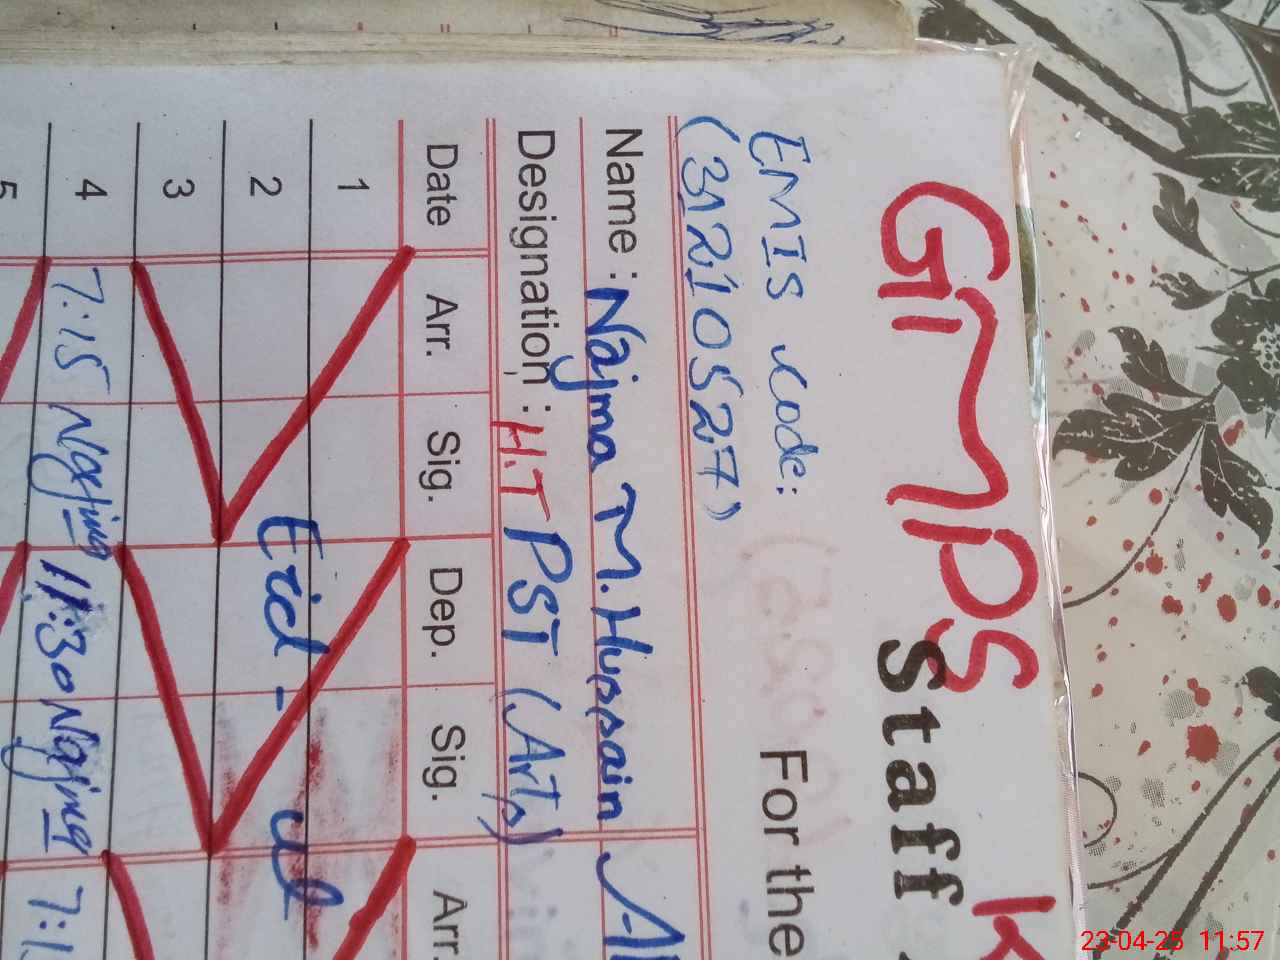 GMPS K
Staff
EMIS Code: For the
(31210527)
Name : Najma M.Hussain
Designation : H.T PST (Arts)
Date Arr. Sig. Dep. Sig. Arr.
1
2 Eid - ul
3
4 7:15 Najma 11:30 Najma 7:1
5
23-04-25 11:57